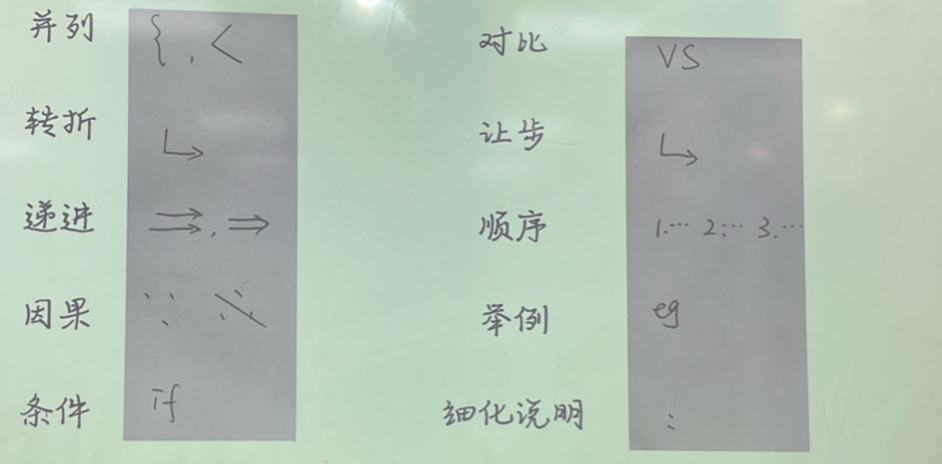 并列 {, <
转折 ↳
递进 ⇉, ⇒
因果 ∵ ∴
条件 if
对比 VS
让步 ↳
顺序 1.… 2.… 3.…
举例 eg
细化说明 :